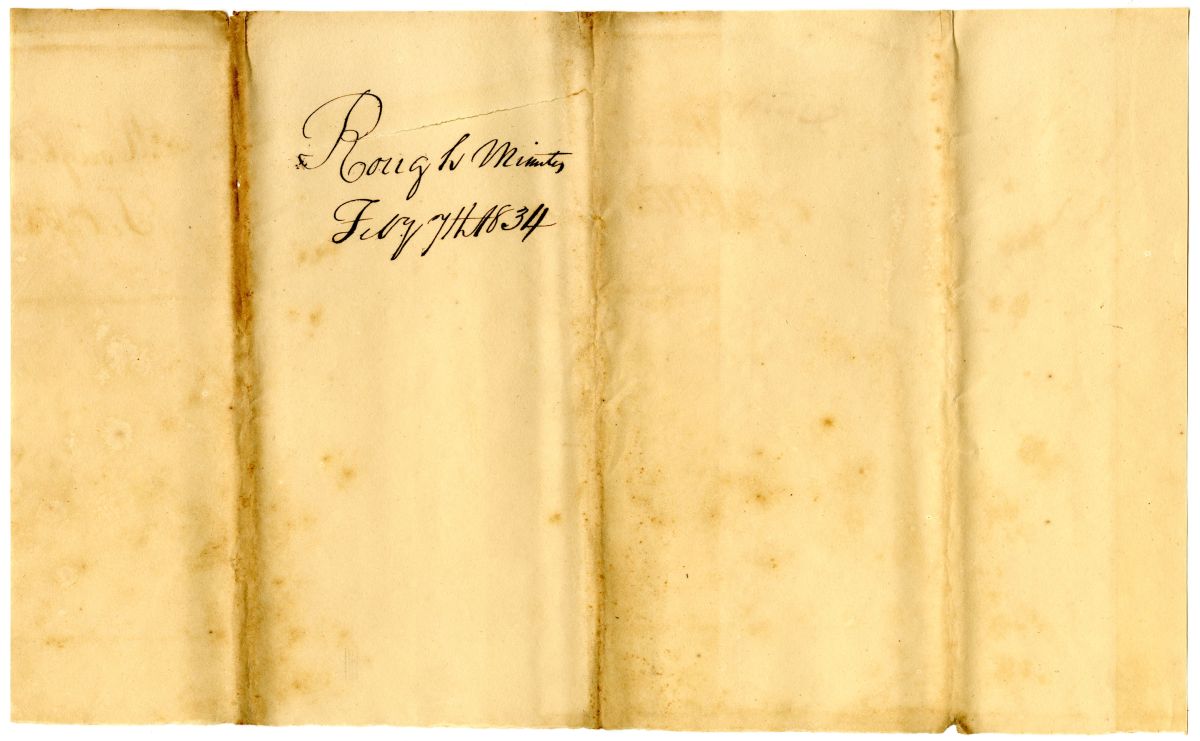 Rough Minutes
Feby 7th 1834